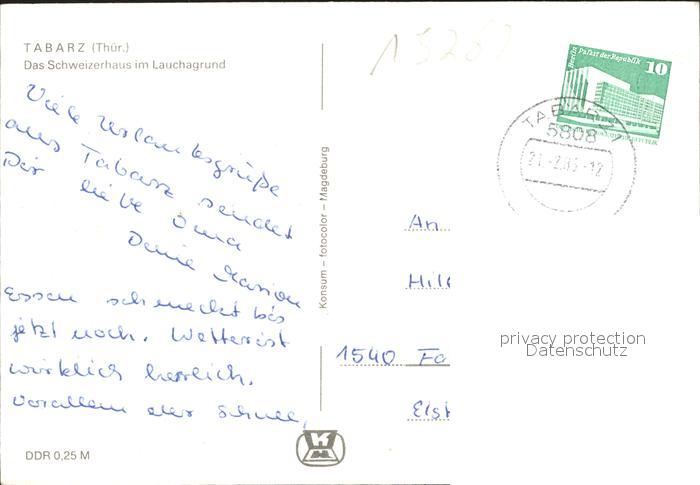 TABARZ (Thür.)
Das Schweizerhaus im Lauchagrund
Viele Urlaubsgrüße
aus Tabarz sendet
Dir liebe Oma
Deine Marion
Essen schmeckt bis
jetzt noch. Wetter ist
wirklich herrlich.
Vorallem der Schnee,
DDR 0,25 M
Konsum – fotocolor – Magdeburg
Berlin Palast der Republik 10
TABARZ 1
5808
An
Hil
1540 Fa
Elst
privacy protection
Datenschutz